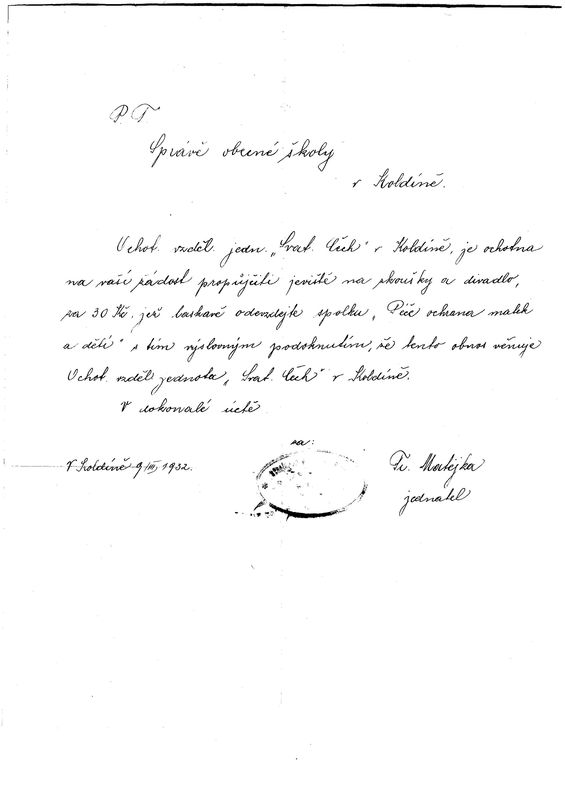 P. T
Správě obecné školy
v Koldíně.
Ochot. vzděl. jedn. „Svat. Čech" v Koldíně, je ochotna
na vaší žádost propůjčiti jeviště na zkoušky a divadlo,
za 30 Kč, jež laskavě odevzdejte spolku „Péče ochrana matek
a dětí" s tím výslovným podotknutím, že tento obnos věnuje
Ochot. vzděl. jednota „Svat. Čech" v Koldíně.
V dokonalé úctě
za:
V Koldíně 9/III, 1932.
Fr. Matějka
jednatel